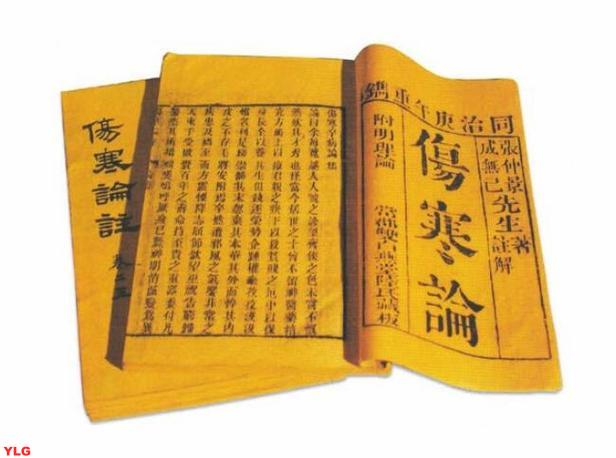 同治庚午重鐫
張仲景先生著
成無己先生註解
傷寒論
附明理論 常郡雙白燕堂陸氏藏板
傷寒卒病論集
論曰余每覽越人入虢之診望齊侯之色未嘗不慨
然歎其才秀也怪當今居世之士曾不留神醫藥精
究方術上以療君親之疾下以救貧賤之厄中以保
身長全以養其生但競逐榮勢企踵權豪孜孜汲汲
惟名利是務崇飾其末忽棄其本華其外而悴其內
皮之不存毛將安附焉卒然遭邪風之氣嬰非常之
疾患及禍至而方震慄降志屈節欽望巫祝告窮歸
天束手受敗賫百年之壽命持至貴之重器委付凡
醫恣其所措咄嗟嗚呼厥身已斃神明消滅變為異
傷寒論註
卷
YLG